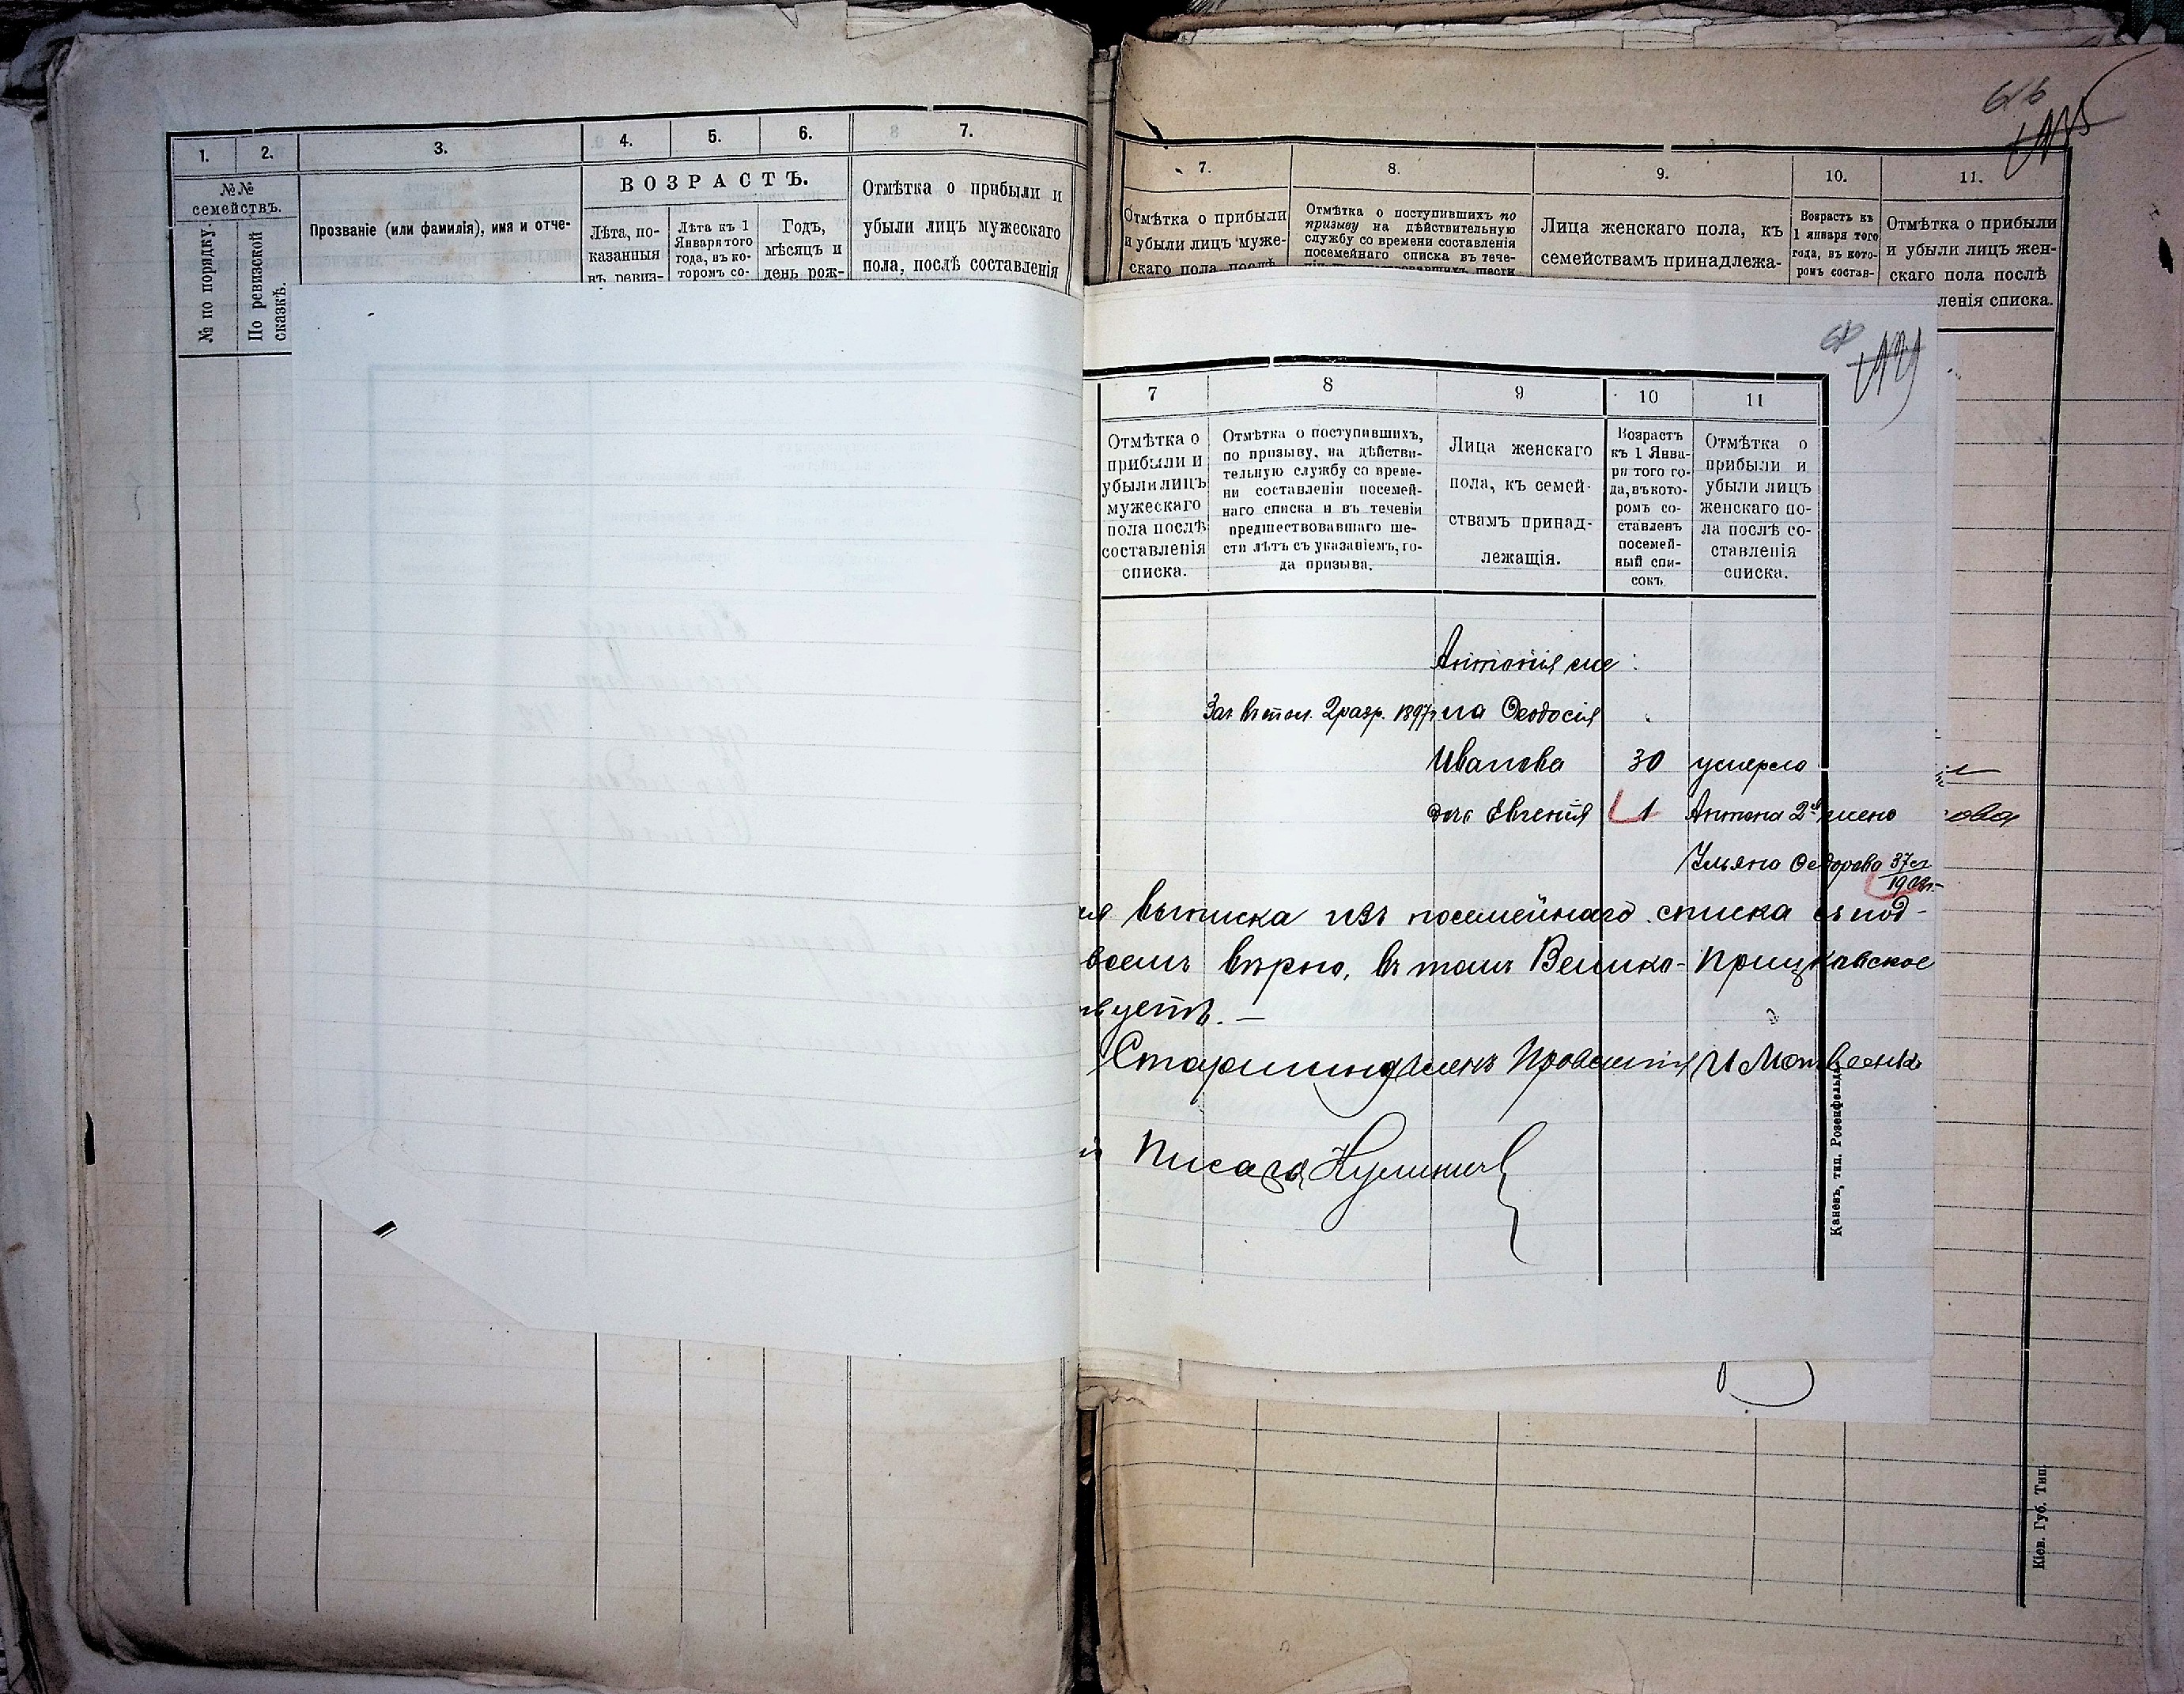 1.
2.
3.
4.
5.
6.
7.
№№
семействъ.
№ по порядку.
По ревизской
сказкѣ.
Прозваніе (или фамилія), имя и отче-
ВОЗРАСТЪ.
Лѣта, по-
казанныя
въ ревиз-
Лѣта къ 1
Января того
года, въ ко-
торомъ со-
Годъ,
мѣсяцъ и
день рож-
Отмѣтка о прибыли и
убыли лицъ мужескаго
пола, послѣ составленія
7.
8.
9.
10.
11.
Отмѣтка о прибыли
и убыли лицъ муже-
скаго пола послѣ
Отмѣтка о поступившихъ по
призыву на дѣйствительную
службу со времени составленія
посемейнаго списка въ тече-
Лица женскаго пола, къ
семействамъ принадлежа-
Возрастъ къ
1 января того
года, въ кото-
ромъ состав-
Отмѣтка о прибыли
и убыли лицъ жен-
скаго пола послѣ
ленія списка.
7
8
9
10
11
Отмѣтка о
прибыли и
убыли лицъ
мужескаго
пола послѣ
составленія
списка.
Отмѣтка о поступившихъ,
по призыву, на дѣйстви-
тельную службу со време-
ни составленія посемей-
наго списка и въ теченіи
предшествовавшаго ше-
сти лѣтъ съ указаніемъ, го-
да призыва.
Лица женскаго
пола, къ семей-
ствамъ принад-
лежащія.
Возрастъ
къ 1 Янва-
ря того го-
да, въ кото-
ромъ со-
ставленъ
посемей-
ный спи-
сокъ
Отмѣтка о
прибыли и
убыли лицъ
женскаго по-
ла послѣ со-
ставленія
списка.
Антонія же
2 разр. 1897 г. на Феодосія
Иванова 30 умерла
дочь Евгенія 1 Антона 2я жена
Ульяна Федорова 37 л.
1908 г.
выписка изъ посемейнаго списка съ под-
вѣрна, въ томъ Велико-Прицковское
вуетъ. —
Старшина Членъ Правленія И Матвеенко
Писарь Кулинич
Каневъ, тип. Розенфельда
Кіев. Губ. Тип.